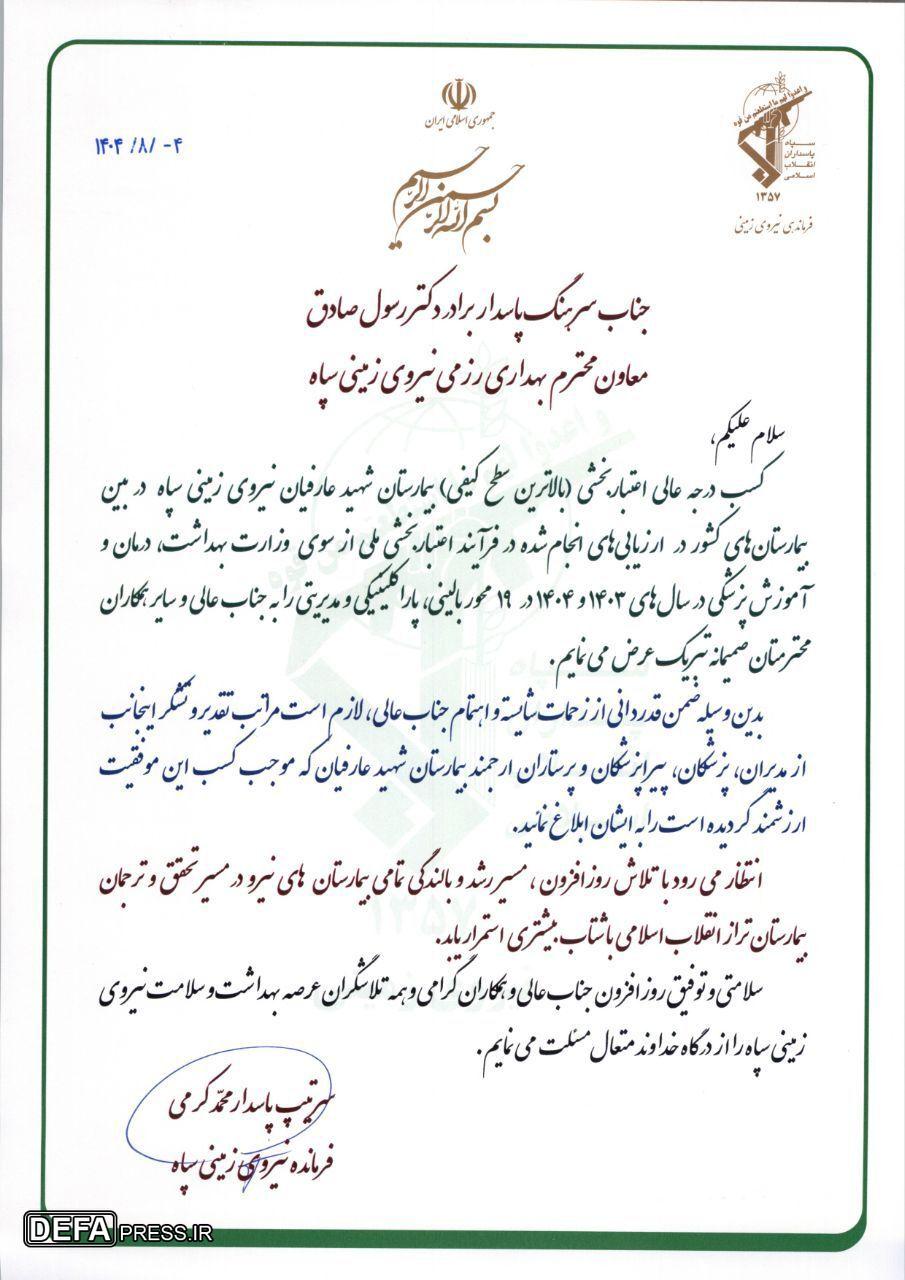 جمهوری اسلامی ایران
بسم الله الرحمن الرحیم
۱۴۰۴ /۸/ -۴
و اعدوا لهم ما استطعتم من قوة
سپاه
پاسداران
انقلاب
اسلامی
۱۳۵۷
فرماندهی نیروی زمینی
جناب سرهنگ پاسدار برادر دکتر رسول صادق
معاون محترم بهداری رزمی نیروی زمینی سپاه
سلام علیکم،
کسب درجه عالی اعتباربخشی (بالاترین سطح کیفی) بیمارستان شهید عارفیان نیروی زمینی سپاه در بین
بیمارستان‌های کشور در ارزیابی‌های انجام شده در فرآیند اعتباربخشی ملی از سوی وزارت بهداشت، درمان و
آموزش پزشکی در سال‌های ۱۴۰۳ و ۱۴۰۴ در ۱۹ محور بالینی، پاراکلینیکی و مدیریتی را به جناب عالی و سایر همکاران
محترمتان صمیمانه تبریک عرض می نمایم.
بدین وسیله ضمن قدردانی از زحمات شایسته و اهتمام جناب عالی، لازم است مراتب تقدیر و تشکر اینجانب
از مدیران، پزشکان، پیراپزشکان و پرستاران ارجمند بیمارستان شهید عارفیان که موجب کسب این موفقیت
ارزشمند گردیده است را به ایشان ابلاغ نمائید.
انتظار می رود با تلاش روز افزون، مسیر رشد و بالندگی تمامی بیمارستان های نیرو در مسیر تحقق و ترجمان
بیمارستان تراز انقلاب اسلامی با شتاب بیشتری استمرار یابد.
سلامتی و توفیق روز افزون جناب عالی و همکاران گرامی و همه تلاشگران عرصه بهداشت و سلامت نیروی
زمینی سپاه را از درگاه خداوند متعال مسئلت می نمایم.
سرتیپ پاسدار محمّد کرمی
فرمانده نیروی زمینی سپاه
DEFAPRESS.IR